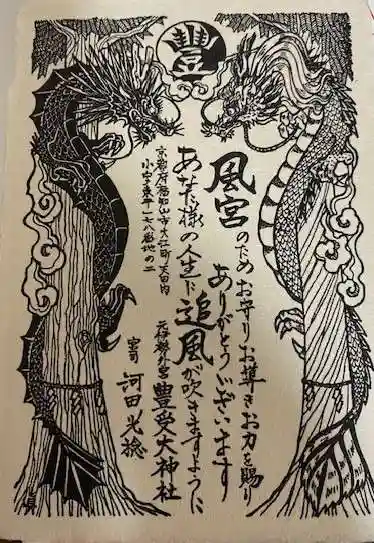 豐
風宮のためお守りお導きお力を賜り
ありがとうございます
あなた様の人生に追風が吹きますように
京都府福知山市大江町天田内
小字東平一七八番地の二
元伊勢外宮 豊受大神社
宮司 河田光稔